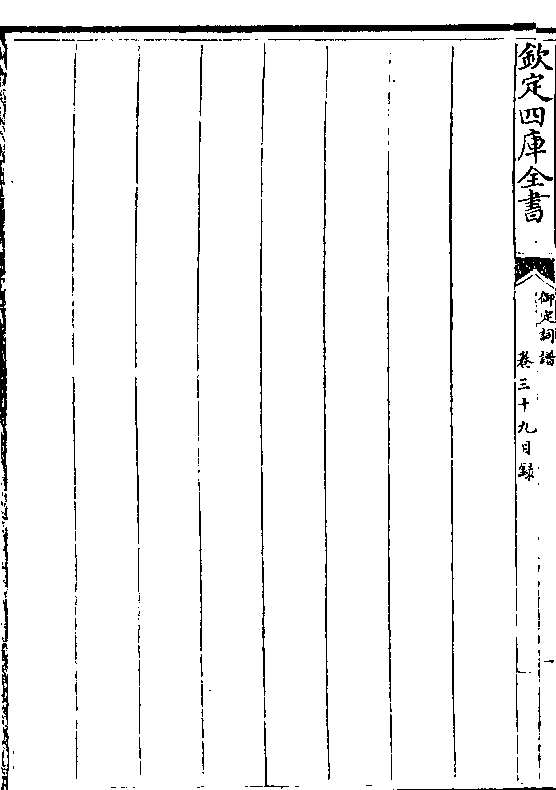 欽定四庫全書
御定詞譜
卷三十九目録
一